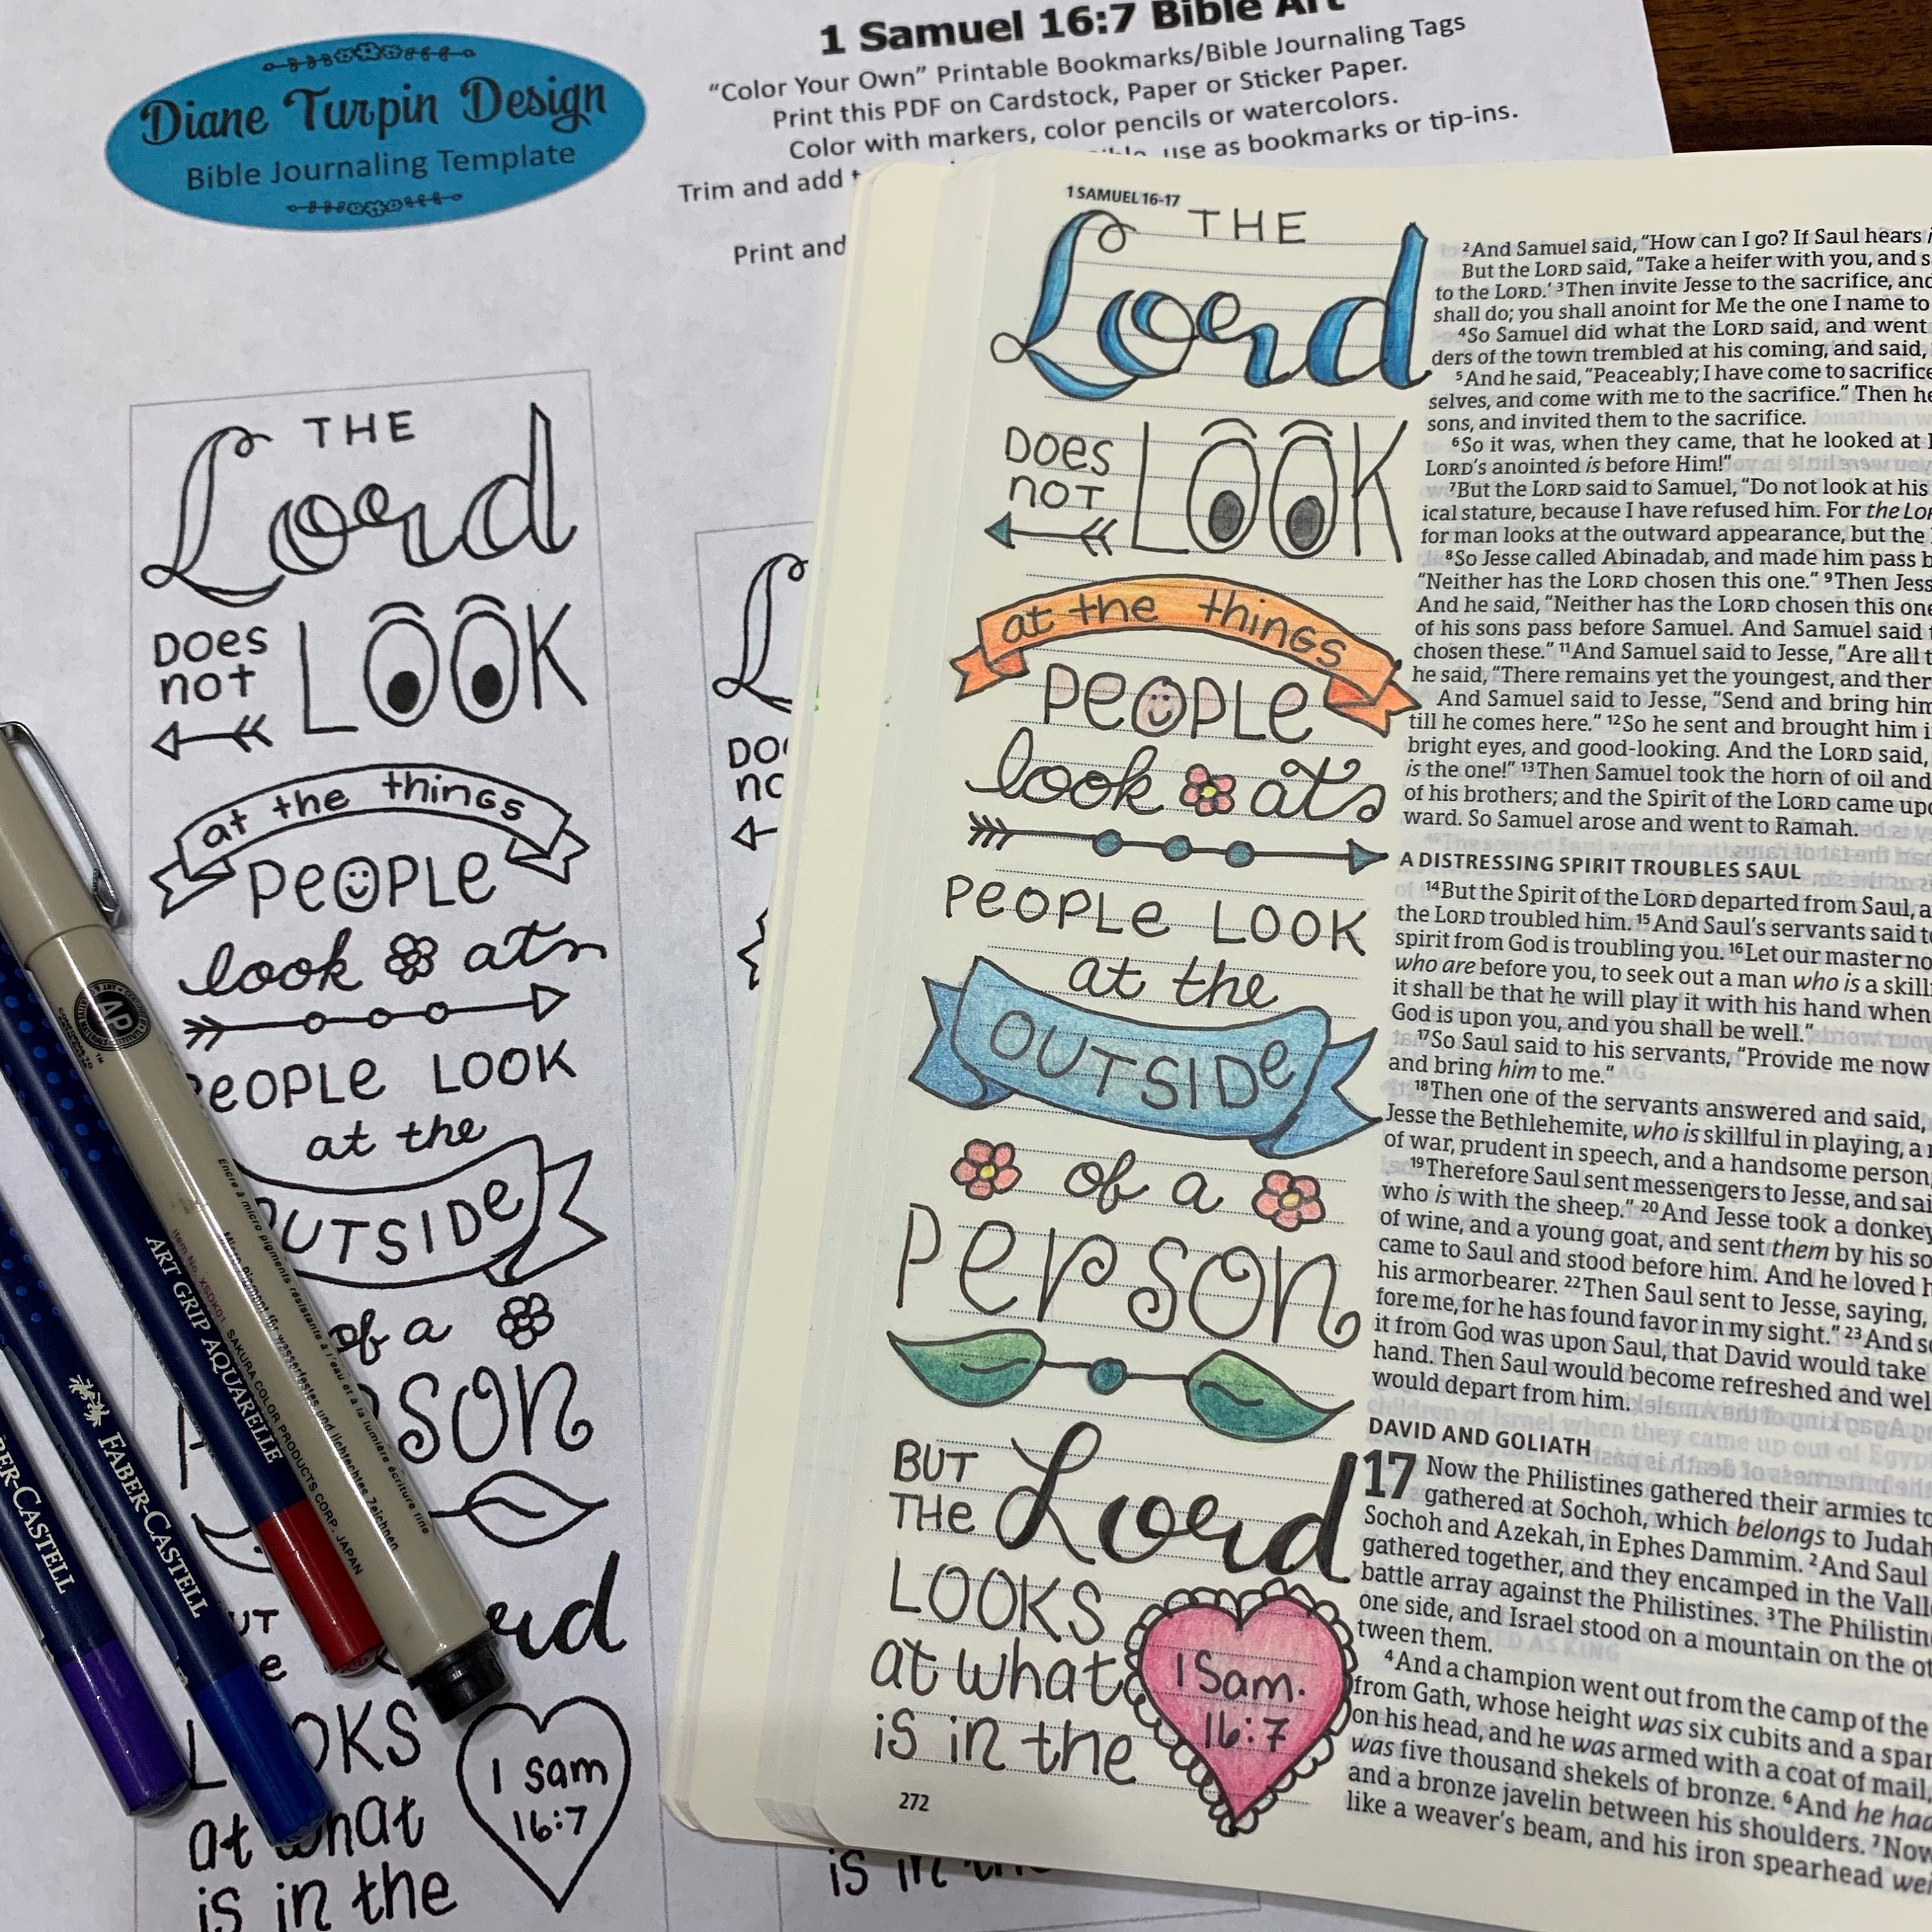 Diane Turpin Design
Bible Journaling Template
1 Samuel 16:7 Bible Art
"Color Your Own" Printable Bookmarks/Bible Journaling Tags
Print this PDF on Cardstock, Paper or Sticker Paper.
Color with markers, color pencils or watercolors.
Trim and add
use as bookmarks or tip-ins.
Print and
THE
Lord
DOES
NOT
LOOK
at the things
PEOPLE
look at
PEOPLE LOOK
at the
OUTSIDE
of a
SON
LOOKS
at what
is in the
1 Sam
16:7
AP
ART GRIP AQUARELLE
FABER-CASTELL
SAKURA COLOR PRODUCTS CORP. JAPAN
Item No. XSDK01
is in
1 SAMUEL 16-17
THE
Lord
DOES
NOT
LOOK
at the things
PEOPLE
look at
PEOPLE LOOK
at the
OUTSIDE
of a
PERSON
BUT
THE
Lord
LOOKS
at what
is in the
1 Sam.
16:7
272
2And Samuel said, "How can I go? If Saul hears
But the LORD said, "Take a heifer with you, and
to the LORD.' 3Then invite Jesse to the sacrifice, and
shall do; you shall anoint for Me the one I name to
4So Samuel did what the LORD said, and went
ders of the town trembled at his coming, and said,
5And he said, "Peaceably; I have come to sacrifice
selves, and come with me to the sacrifice." Then he
sons, and invited them to the sacrifice.
6So it was, when they came, that he looked at
LORD's anointed is before Him!"
7But the LORD said to Samuel, "Do not look at his
ical stature, because I have refused him. For the
for man looks at the outward appearance, but the
8So Jesse called Abinadab, and made him pass
"Neither has the LORD chosen this one." 9Then
And he said, "Neither has the LORD chosen this one
of his sons pass before Samuel. And Samuel said
chosen these." 11And Samuel said to Jesse, "Are all
he said, "There remains yet the youngest, and
And Samuel said to Jesse, "Send and bring him
till he comes here." 12So he sent and brought him
bright eyes, and good-looking. And the LORD said,
is the one!" 13Then Samuel took the horn of oil and
of his brothers; and the Spirit of the LORD came
ward. So Samuel arose and went to Ramah.
A DISTRESSING SPIRIT TROUBLES SAUL
14But the Spirit of the LORD departed from Saul,
the LORD troubled him. 15And Saul's servants said
spirit from God is troubling you. 16Let our master
who are before you, to seek out a man who is a
it shall be that he will play it with his hand when
God is upon you, and you shall be well."
17So Saul said to his servants, "Provide me now
and bring him to me."
18Then one of the servants answered and said,
Jesse the Bethlehemite, who is skillful in playing, a
of war, prudent in speech, and a handsome person,
19Therefore Saul sent messengers to Jesse, and
who is with the sheep." 20And Jesse took a donkey
of wine, and a young goat, and sent them by his
came to Saul and stood before him. And he loved
his armorbearer. 22Then Saul sent to Jesse, saying,
fore me, for he has found favor in my sight." 23And
it from God was upon Saul, that David would take
hand. Then Saul would become refreshed and
would depart from him.
DAVID AND GOLIATH
17 Now the Philistines gathered their armies
gathered at Sochoh, which belongs to Judah
Sochoh and Azekah, in Ephes Dammim. 2And Saul
gathered together, and they encamped in the
battle array against the Philistines. 3The
one side, and Israel stood on a mountain on the
tween them.
4And a champion went out from the camp of the
from Gath, whose height was six cubits and a
on his head, and he was armed with a coat of mail,
was five thousand shekels of bronze. 6And he had
and a bronze javelin between his shoulders. 7Now
like a weaver's beam, and his iron spearhead